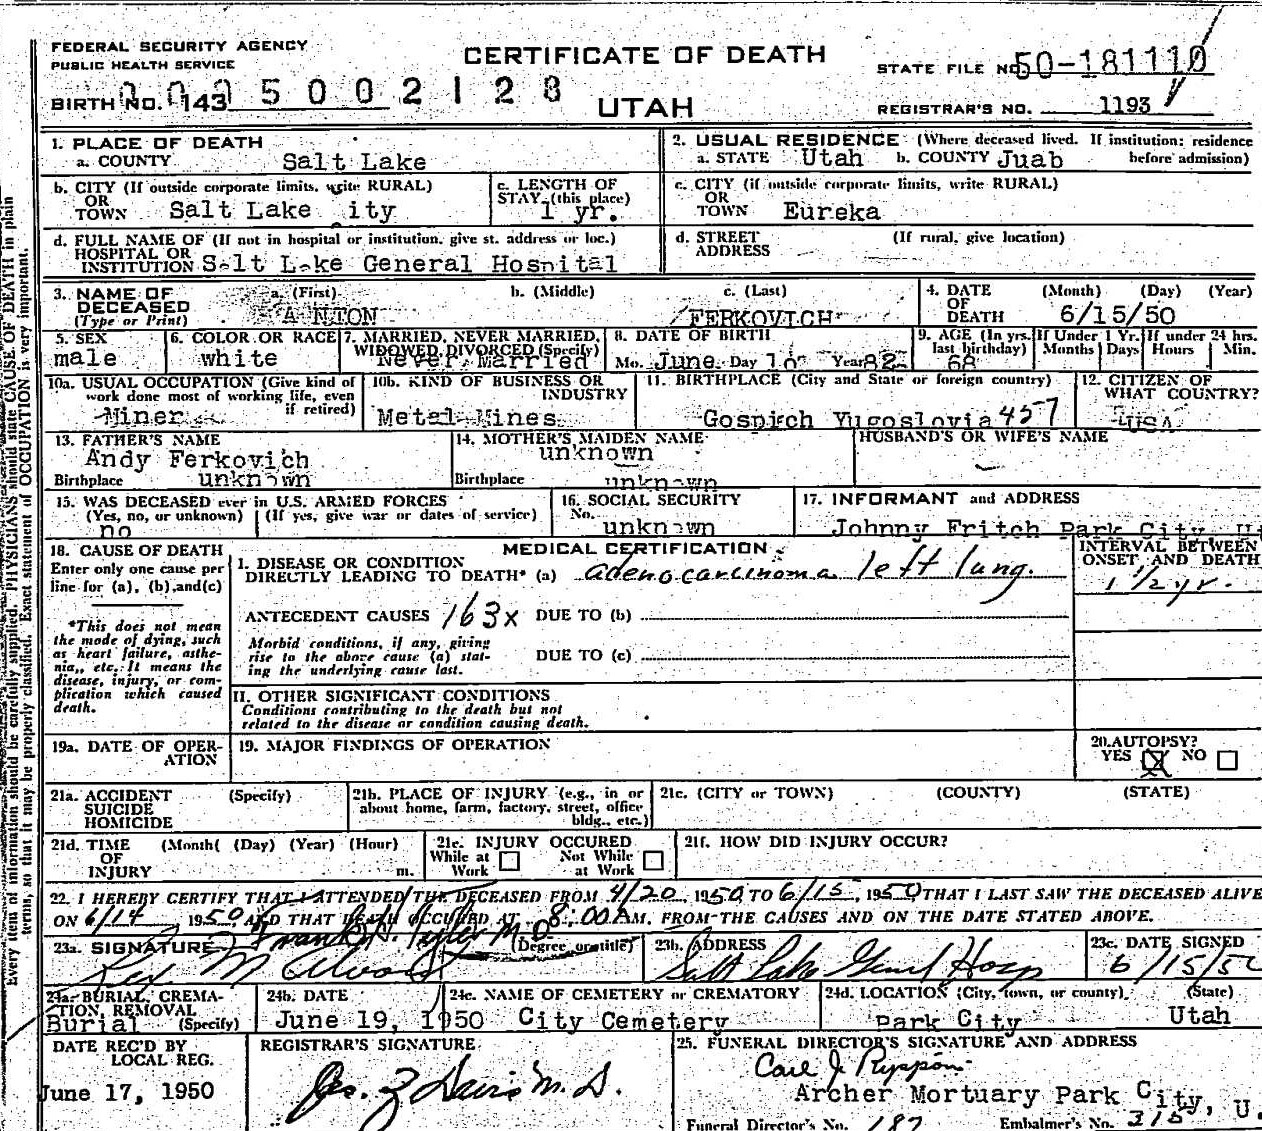 FEDERAL SECURITY AGENCY
PUBLIC HEALTH SERVICE
CERTIFICATE OF DEATH
STATE FILE NO. 50-181110
BIRTH NO. 143 5002128
UTAH
REGISTRAR'S NO. 1193
1. PLACE OF DEATH
a. COUNTY Salt Lake
2. USUAL RESIDENCE (Where deceased lived. If institution: residence before admission)
a. STATE Utah b. COUNTY Juab
b. CITY (If outside corporate limits, write RURAL)
OR
TOWN Salt Lake ity
c. LENGTH OF
STAY (this place)
1 yr.
c. CITY (if outside corporate limits, write RURAL)
OR
TOWN Eureka
d. FULL NAME OF (If not in hospital or institution, give st. address or loc.)
HOSPITAL OR
INSTITUTION Salt Lake General Hospital
d. STREET (If rural, give location)
ADDRESS
3. NAME OF
DECEASED
(Type or Print)
a. (First) b. (Middle) c. (Last)
ANTON FERKOVICH
4. DATE (Month) (Day) (Year)
OF
DEATH 6/15/50
5. SEX
male
6. COLOR OR RACE
white
7. MARRIED, NEVER MARRIED,
WIDOWED, DIVORCED (Specify)
Never Married
8. DATE OF BIRTH
Mo. June Day Year 82
9. AGE (In yrs. last birthday)
68
If Under 1 Yr.
Months Days
If under 24 hrs.
Hours Min.
10a. USUAL OCCUPATION (Give kind of
work done most of working life, even
if retired)
Miner
10b. KIND OF BUSINESS OR
INDUSTRY
Metal Mines
11. BIRTHPLACE (City and State or foreign country)
Gospich Yugoslovia 457
12. CITIZEN OF
WHAT COUNTRY?
USA
13. FATHER'S NAME
Andy Ferkovich
Birthplace unknown
14. MOTHER'S MAIDEN NAME
unknown
Birthplace unknown
HUSBAND'S OR WIFE'S NAME
15. WAS DECEASED ever in U.S. ARMED FORCES
(Yes, no, or unknown) (If yes, give war or dates of service)
no
16. SOCIAL SECURITY
No.
unknown
17. INFORMANT and ADDRESS
Johnny Fritch Park City, Ut
18. CAUSE OF DEATH
Enter only one cause per
line for (a), (b), and (c)
*This does not mean
the mode of dying, such
as heart failure, asthe-
nia, etc. It means the
disease, injury, or com-
plication which caused
death.
MEDICAL CERTIFICATION
I. DISEASE OR CONDITION
DIRECTLY LEADING TO DEATH* (a) adenocarcinoma left lung.
INTERVAL BETWEEN
ONSET AND DEATH
1 1/2 yr.
ANTECEDENT CAUSES 163x DUE TO (b)
Morbid conditions, if any, giving
rise to the above cause (a) stat-
ing the underlying cause last.
DUE TO (c)
II. OTHER SIGNIFICANT CONDITIONS
Conditions contributing to the death but not
related to the disease or condition causing death.
19a. DATE OF OPER-
ATION
19. MAJOR FINDINGS OF OPERATION
20. AUTOPSY?
YES X NO
21a. ACCIDENT (Specify)
SUICIDE
HOMICIDE
21b. PLACE OF INJURY (e.g., in or
about home, farm, factory, street, office
bldg., etc.)
21c. (CITY or TOWN) (COUNTY) (STATE)
21d. TIME (Month) (Day) (Year) (Hour)
OF
INJURY m.
21e. INJURY OCCURED
While at Work Not While at Work
21f. HOW DID INJURY OCCUR?
22. I HEREBY CERTIFY THAT I ATTENDED THE DECEASED FROM 4/20, 1950 TO 6/15, 1950, THAT I LAST SAW THE DECEASED ALIVE
ON 6/14 1950 AND THAT DEATH OCCURED AT 8:00AM. FROM THE CAUSES AND ON THE DATE STATED ABOVE.
23a. SIGNATURE Frank H. Tyler M.D. (Degree or title)
23b. ADDRESS
Salt Lake Genrl Hosp
23c. DATE SIGNED
6/15/50
24a. BURIAL, CREMA-
TION, REMOVAL
Burial (Specify)
24b. DATE
June 19, 1950
24c. NAME OF CEMETERY or CREMATORY
City Cemetery
24d. LOCATION (City, town, or county) (State)
Park City Utah
DATE REC'D BY
LOCAL REG.
June 17, 1950
REGISTRAR'S SIGNATURE
25. FUNERAL DIRECTOR'S SIGNATURE AND ADDRESS
Carl J.
Archer Mortuary Park City, U.
Funeral Director's No. 187 Embalmer's No. 315
Every item of information should be carefully supplied. PHYSICIANS should state CAUSE OF DEATH in plain
terms, so that it may be properly classified. Exact statement of OCCUPATION is very important.